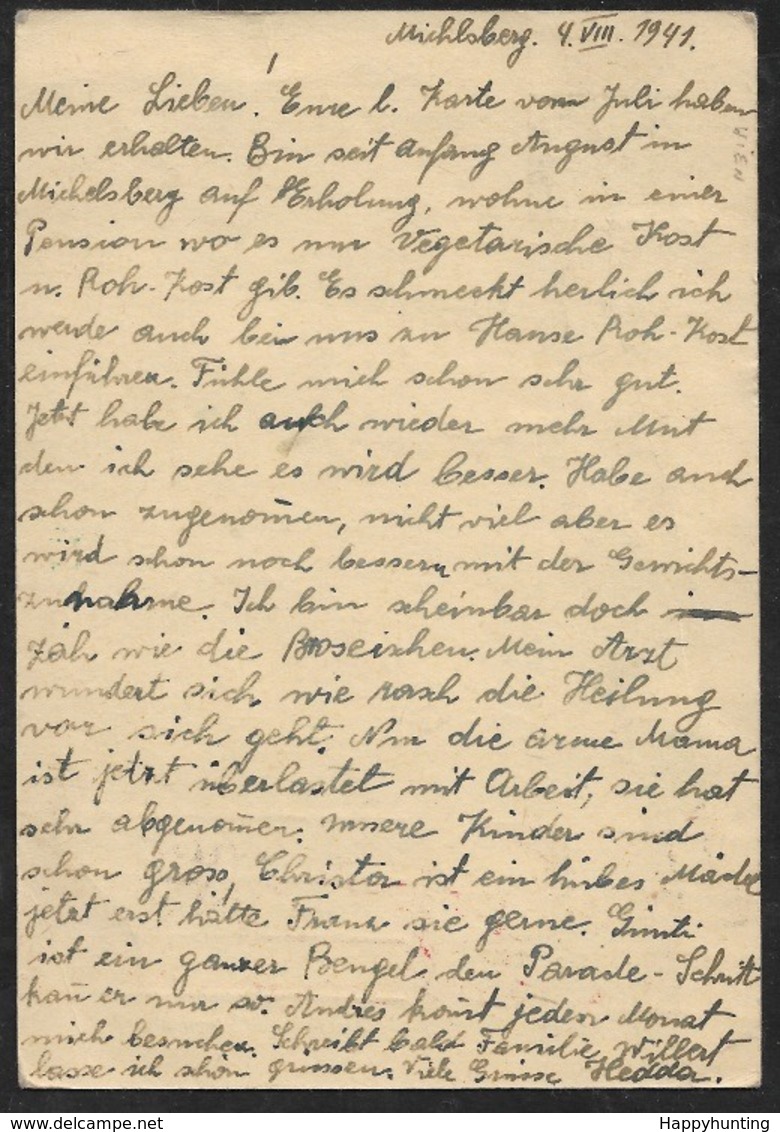 Michlsberg. 4. VIII. 1941.
Meine Lieben! Eure l. Karte vom Juli haben
wir erhalten. Bin seit anfang August in
Michelsberg auf Erholung, wohne in einer
Pension wo es nur Vegetarische Kost
u. Roh-Kost gib. Es schmeckt herlich ich
werde auch bei uns zu Hause Roh-Kost
einführen. Fühle mich schon sehr gut.
Jetzt habe ich auch wieder mehr Mut
den ich sehe es wird besser. Habe auch
schon zugenom̄en, nicht viel aber es
wird schon noch bessern mit der Gewichts-
zunahme. Ich bin scheinbar doch
Zäh wie die Mein Arzt
wundert sich wie rasch die Heilung
vor sich geht. Nur die arme Mama
ist jetzt überlastet mit Arbeit, sie hat
sehr abgenom̄en. unsere Kinder sind
schon gross, Christa ist ein liebes Mädel
jetzt erst hätte Franz sie gerne. Günti
ist ein ganzer Bengel den Parade-Schritt
kan̄ er nur so. Andres kom̄t jeden Monat
mich besuchen. Schreibt bald Familie Willert
lasse ich schön grüssen. Viele Grüsse Hedda.
WIEN
Happyhunting